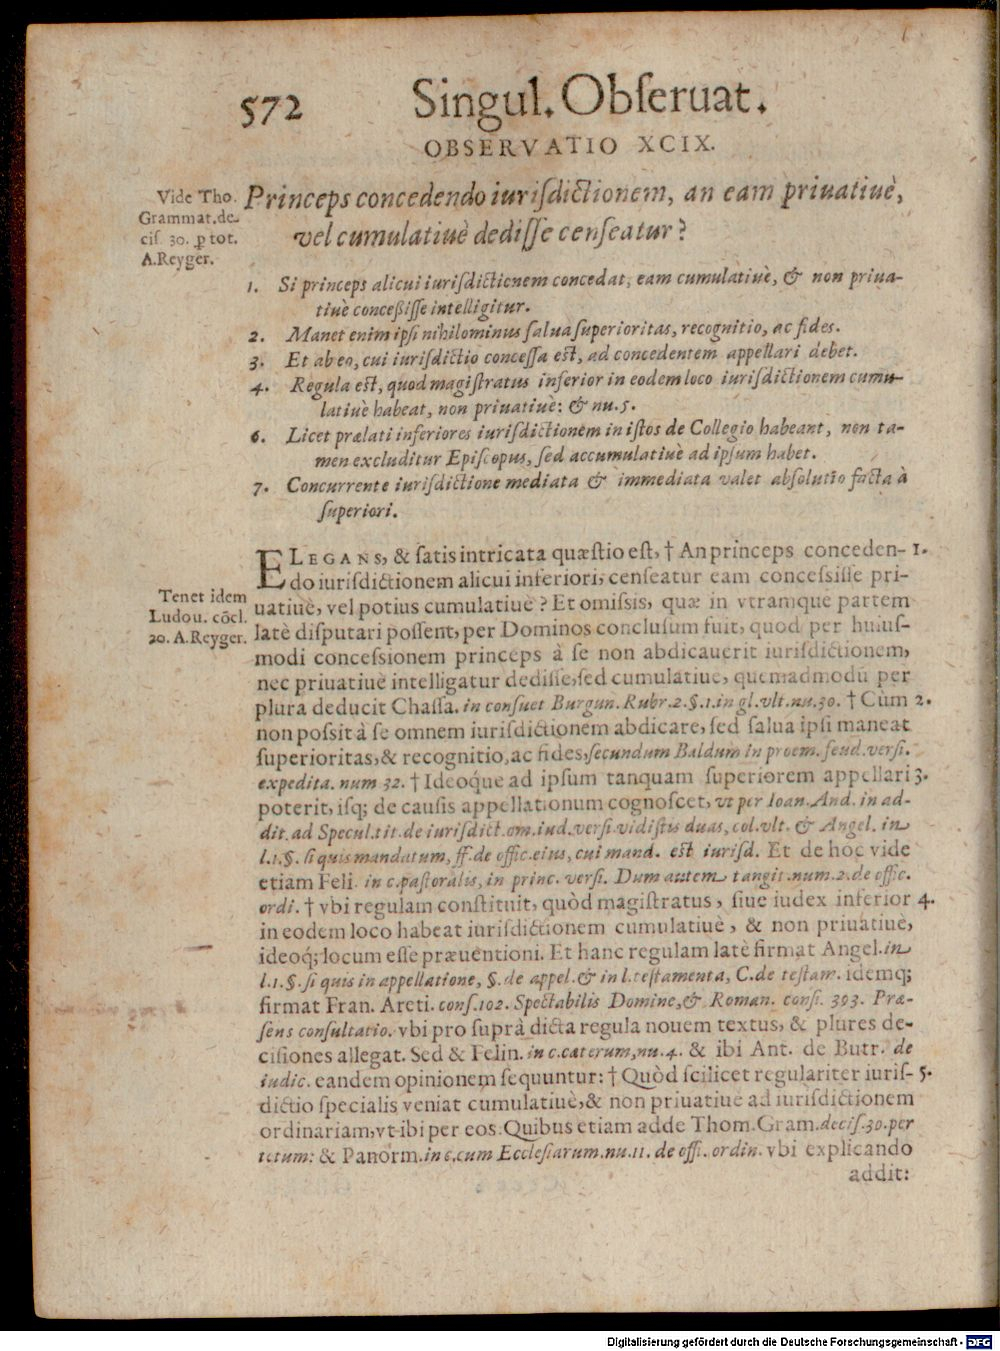 572
Singul. Obſeruat.
OBSERVATIO XCIX.
Vide Tho.
Grammat. de-
ciſ. 30. ꝑ tot.
A. Reyger.
Princeps concedendo iuriſdictionem, an eam priuatiuè,
vel cumulatiuè dediſſe cenſeatur?
1. Si princeps alicui iuriſdictionem concedat, eam cumulatiuè, & non priua-
tiuè conceßiſſe intelligitur.
2. Manet enim ipſi nihilominus ſalua ſuperioritas, recognitio, ac fides.
3. Et ab eo, cui iuriſdictio conceſſa est, ad concedentem appellari debet.
4. Regula est, quod magiſtratus inferior in eodem loco iuriſdictionem cumu-
latiuè habeat, non priuatiuè: & nu. 5.
6. Licet prælati inferiores iuriſdictionem in iſtos de Collegio habeant, non ta-
men excluditur Epiſcopus, ſed accumulatiuè ad ipſum habet.
7. Concurrente iuriſdictione mediata & immediata valet abſolutio facta à
ſuperiori.
ELEGANS, & ſatis intricata quæſtio eſt, † An princeps conceden- 1.
do iuriſdictionem alicui inferiori, cenſeatur eam conceſsiſſe pri-
Tenet idem
Ludou. cōcl.
20. A. Reyger.
uatiuè, vel potius cumulatiuè? Et omiſsis, quæ in vtramque partem
latè diſputari poſſent, per Dominos concluſum fuit, quod per huiuſ-
modi conceſsionem princeps à ſe non abdicauerit iuriſdictionem,
nec priuatiuè intelligatur dediſſe, ſed cumulatiuè, quemadmodū per
plura deducit Chaſſa. in conſuet Burgun. Rubr. 2. §. 1. in gl. vlt. nu. 30. † Cùm 2.
non poſsit à ſe omnem iuriſdictionem abdicare, ſed ſalua ipſi maneat
ſuperioritas, & recognitio, ac fides, ſecundum Baldum in proem. feud. verſi.
expedita. num 32. † Ideoque ad ipſum tanquam ſuperiorem appellari 3.
poterit, iſq; de cauſis appellationum cognoſcet, vt per Ioan. And. in ad-
dit. ad Specul. tit. de iuriſdict. om. iud. verſi. vidiſtis duas, col. vlt. & Angel. in
l. 1. §. ſi quis mandatum, ff. de offic. eius, cui mand. est iuriſd. Et de hoc vide
etiam Feli. in c. paſtoralis, in princ. verſi. Dum autem tangit. num. 2. de offic.
ordi. † vbi regulam conſtituit, quòd magiſtratus, ſiue iudex inferior 4.
in eodem loco habeat iuriſdictionem cumulatiuè, & non priuatiuè,
ideoq́; locum eſſe præuentioni. Et hanc regulam latè firmat Angel. in
l. 1. §. ſi quis in appellatione, §. de appel. & in l. teſtamenta, C. de teſtam. idemq;
firmat Fran. Areti. conſ. 102. Spectabilis Domine, & Roman. conſi. 393. Præ-
ſens conſultatio. vbi pro ſuprà dicta regula nouem textus, & plures de-
ciſiones allegat. Sed & Felin. in c. cæterum, nu. 4. & ibi Ant. de Butr. de
iudic. eandem opinionem ſequuntur: † Quòd ſcilicet regulariter iuriſ- 5.
dictio ſpecialis veniat cumulatiuè, & non priuatiuè ad iuriſdictionem
ordinariam, vt ibi per eos. Quibus etiam adde Thom. Gram. deciſ. 30. per
totum: & Panorm. in c. cum Eccleſiarum. nu. 11. de offi. ordin. vbi explicando
addit:
Digitalisierung gefördert durch die Deutsche Forschungsgemeinschaft - DFG